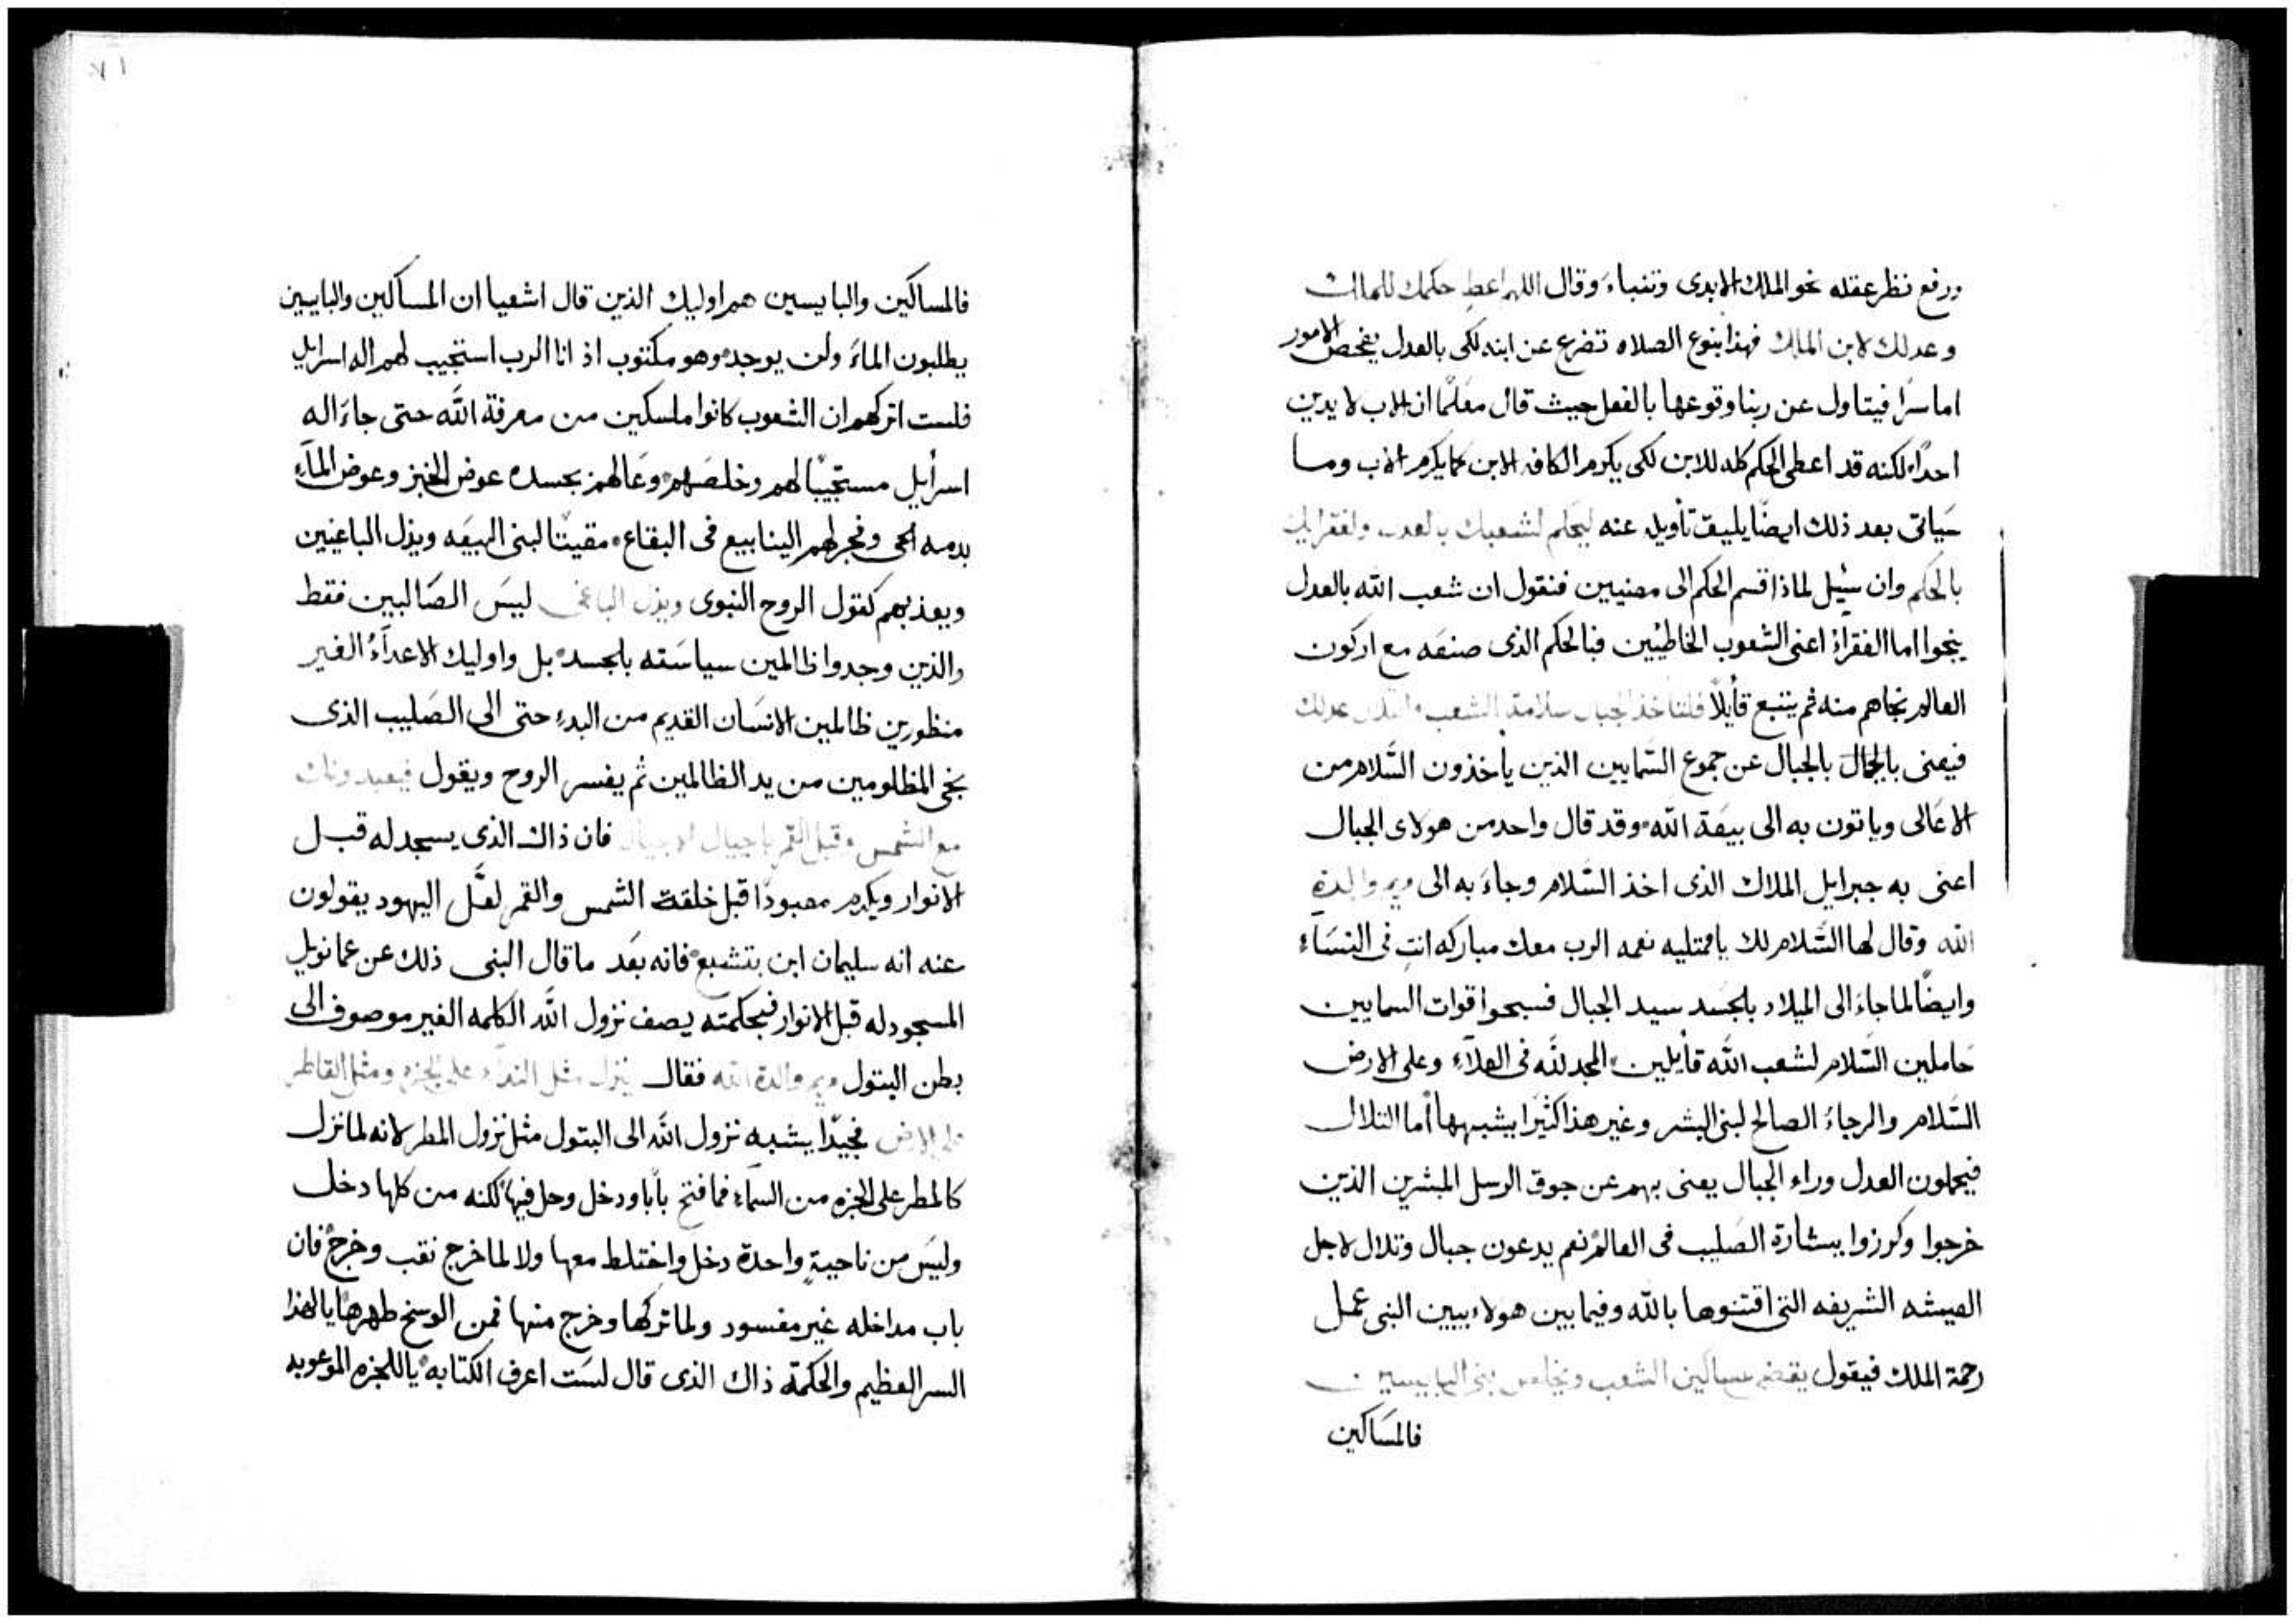 ورفع نظر عقله نحو الملك الابدى وتنباء وقال اللهم اعطِ حكمك للملك
وعدلك لابن الملك فهذا بنوع الصلاه تضرع عن ابنه لكى بالعدل يفحص الامور
اما سرًا فيتاول عن ربنا وقوعها بالفعل حيث قال معَلمًا ان الاب لا يدين
احدًا لكنه قد اعطى الحكم كله للابن لكى يكرم الكافه الابن كما يكرم الاب وما
سَياتى بعد ذلك ايضًا يليق تأويل عنه ليحكم لشعبك بالعدل ولفقرايك
بالحكم وان سُيل لماذا قسم الحكم الى معنيين فنقول ان شعب الله بالعدل
ينجوا اما الفقرآء اعنى الشعوب الخاطيين فبالحكم الذى صنعَه مع اركون
العالم نجاهم منه ثم يتبع قأيلاً فلتاخذ الجبال سلامة الشعب والتلال عدلك
فيعنى بالجمال بالجبال عن جموع السَّمايين الذين يأخذون السَّلام من
الاعَالى وياتون به الى بيعَة الله وقد قال واحد من هولاى الجبال
اعنى به جبرايل الملاك الذى اخذ السَّلام وجاءَ به الى مريم والدة
الله وقال لها السَّلام لك ياممتليه نعمه الرب معك مباركه انتِ فى النسَآء
وايضًا لما جاءَ الى الميلاد بالجسَد سيد الجبال فسبحوا قوات السمايين
حَاملين السَّلام لشعب الله قأيلين المجد لله فى العلآء وعلى الارض
السَّلام والرجاءُ الصالح لبنى البشر وغير هذا كثيرًا يشبهها أما التلال
فيحملون العدل وراء الجبال يعنى بهم عن جوق الرسل المبشرين الذين
خرجوا وكرزوا ببشارة الصَليب فى العالم نعم يدعون جبال وتلال لاجل
العيشه الشريفه التى اقتنوها بالله وفيما بين هولاء يبين النبى عمل
رحمة الملك فيقول يقضى لمساكين الشعب ويخلص بنى البايسين
فالمسَاكين
فالمساكين والبايسين هم اوليك الذين قال اشعيا ان المساكين والبايسين
يطلبون الماءَ ولن يوجد وهو مكتوب اذ انا الرب استجيب لهم اله اسرايل
فلست اتركهم ان الشعوب كانوا ملسكين من معرفة الله حتى جاءَ اله
اسرأيل مستجيبًا لهم وخلصَهم وعَالهم بجسده عوض الخبز وعوض المآءِ
بدمه الحى وفجر لهم الينابيع فى البقاع مقيتًا لبنى البيعَه ويذل الباغيين
ويعذبهم كقول الروح النبوى ويذل الباغى ليسَ الصَالبين فقط
والذين وجدوا ظالمين سياسَته بالجسد بل واوليك الاعدآءُ الغير
منظورين ظالمين الانسَان القديم من البدءِ حتى الى الصَليب الذى
نجى المظلومين من يد الظالمين ثم يفسر الروح ويقول فيعبدونك
مع الشمس وقبل القمر باجيال الاجيال فان ذاك الذى يسجد له قبل
الانوار ويكرم معبودًا قبل خلقة الشمس والقمر لعَّل اليهود يقولون
عنه انه سليمان ابن بتشبع فانه بعَد ما قال النبى ذلك عن عمانويل
المسجود له قبل الانوار فبحكمته يصف نزول الله الكلمه الغير موصوف الى
بطن البتول مريم والدة الله فقال ينزل مثل النداء على الجزه ومثل القاطر
على الارض فجيّدًا يشبه نزول الله الى البتول مثل نزول المطر لانه لما نزل
كالمطر على الجزه من السمآء فما فتح بابًا ودخل وحل فيها لكنه من كلها دخل
وليسَ من ناحيةٍ واحدة دخل واختلط معها ولا لما خرج نقب وخرج فان
باب مداخله غير مفسود ولما تركها وخرج منها فمن الوسخ طهرها يالهذا
السر العظيم والحكمة ذاك الذى قال لسَت اعرف الكتابه ياللجزه الموعوبه